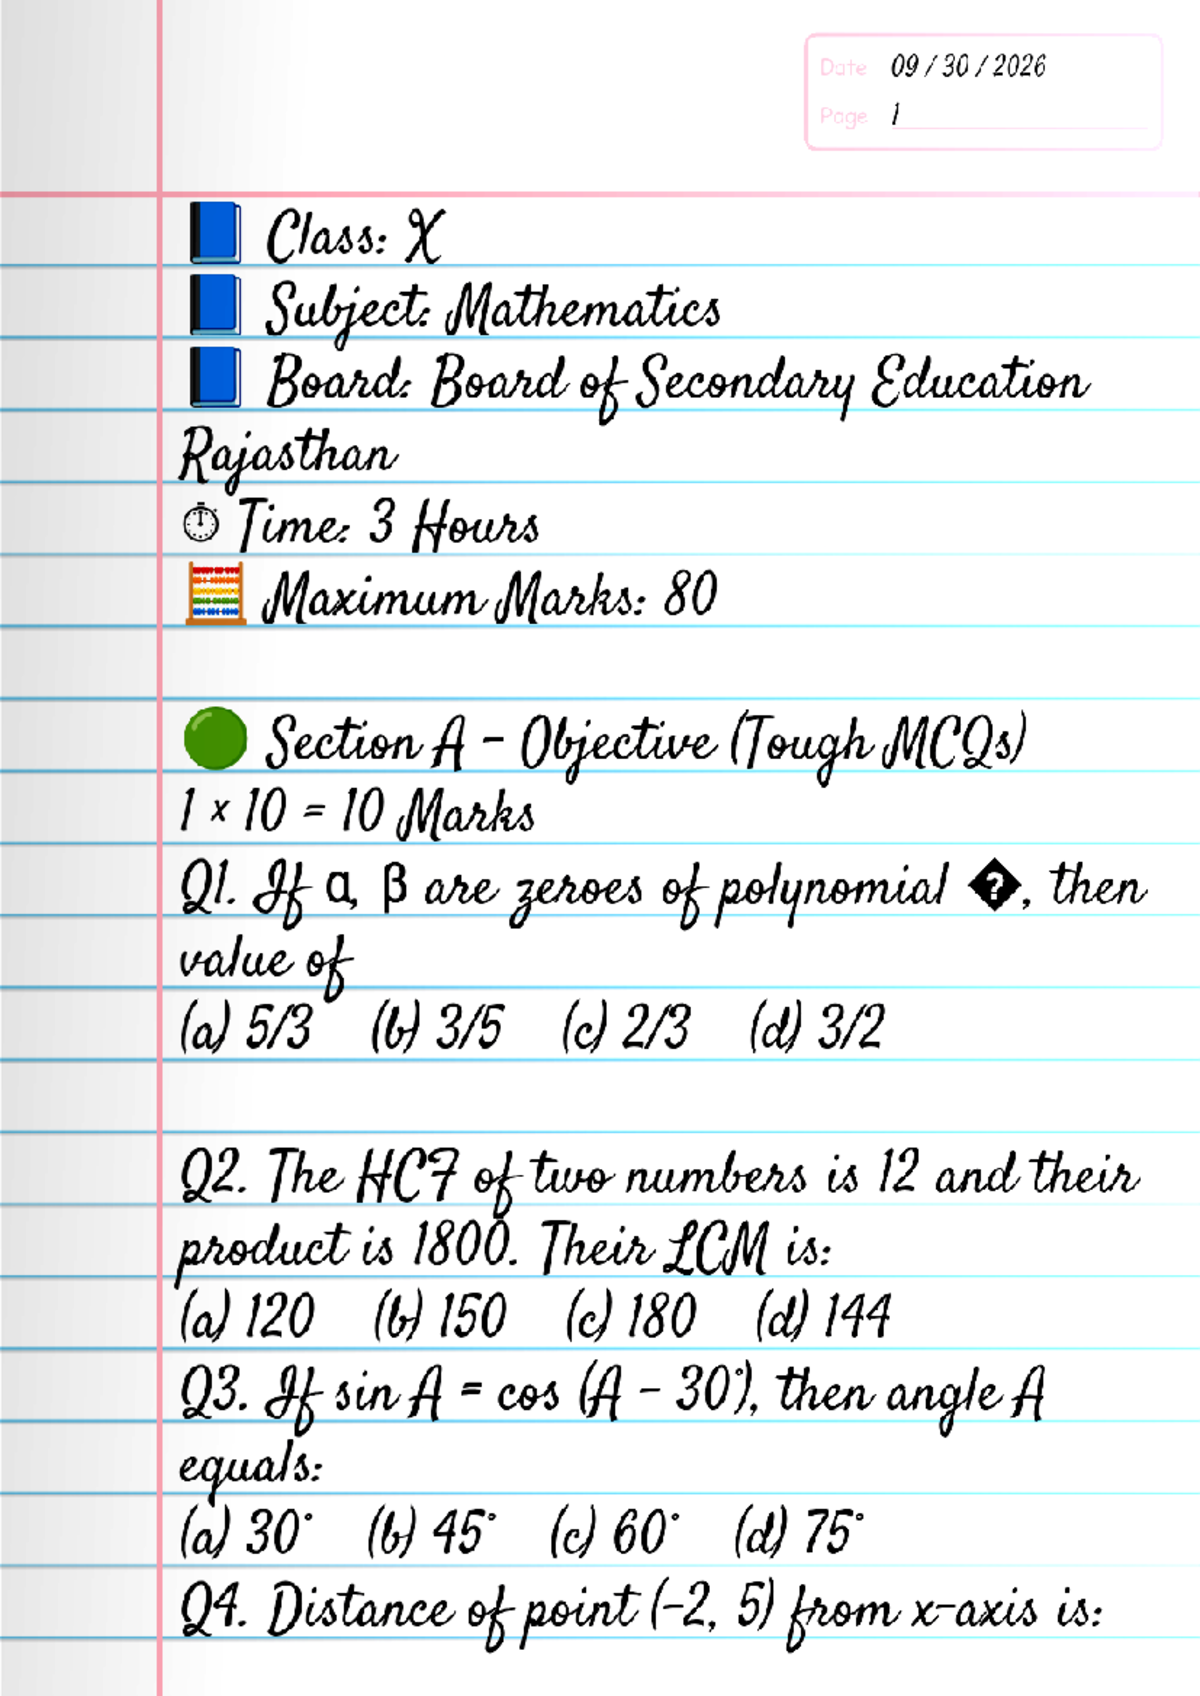 Date 09 / 30 / 2026
Page 1
Class: X
Subject: Mathematics
Board: Board of Secondary Education
Rajasthan
Time: 3 Hours
Maximum Marks: 80
Section A - Objective (Tough MCQs)
1 × 10 = 10 Marks
Q1. If α, β are zeroes of polynomial �, then
value of
(a) 5/3 (b) 3/5 (c) 2/3 (d) 3/2
Q2. The HCF of two numbers is 12 and their
product is 1800. Their LCM is:
(a) 120 (b) 150 (c) 180 (d) 144
Q3. If sin A = cos (A - 30°), then angle A
equals:
(a) 30° (b) 45° (c) 60° (d) 75°
Q4. Distance of point (-2, 5) from x-axis is: